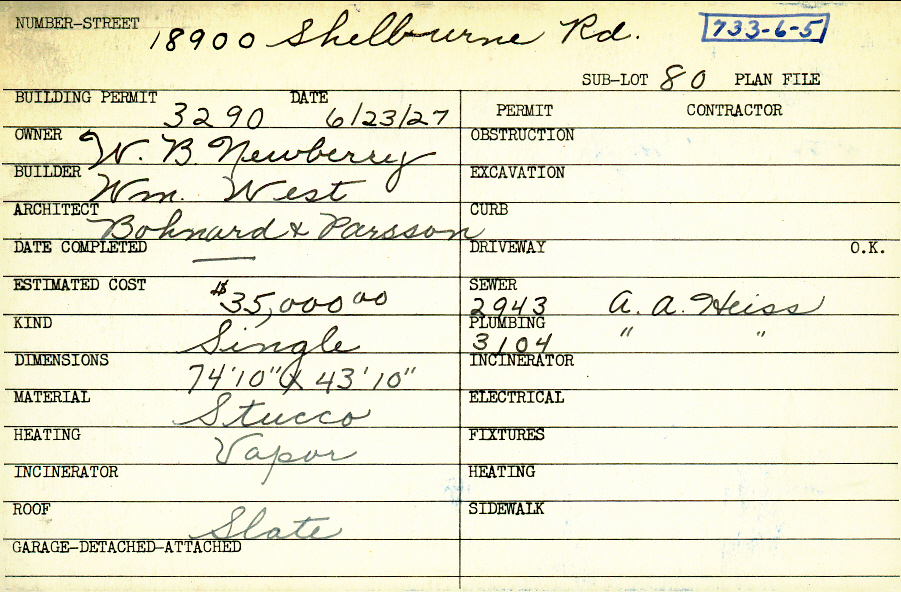 NUMBER-STREET 18900 Shelburne Rd. 733-6-5
SUB-LOT 80 PLAN FILE
BUILDING PERMIT 3290 DATE 6/23/27
PERMIT CONTRACTOR
OWNER W. B. Newberry
OBSTRUCTION
BUILDER Wm. West
EXCAVATION
ARCHITECT Bohnard & Parsson
CURB
DATE COMPLETED —
DRIVEWAY O.K.
ESTIMATED COST $35,000.00
SEWER 2943 A. A. Heiss
KIND Single
PLUMBING 3104 " "
DIMENSIONS 74'10" X 43'10"
INCINERATOR
MATERIAL Stucco
ELECTRICAL
HEATING Vapor
FIXTURES
INCINERATOR
HEATING
ROOF Slate
SIDEWALK
GARAGE-DETACHED-ATTACHED